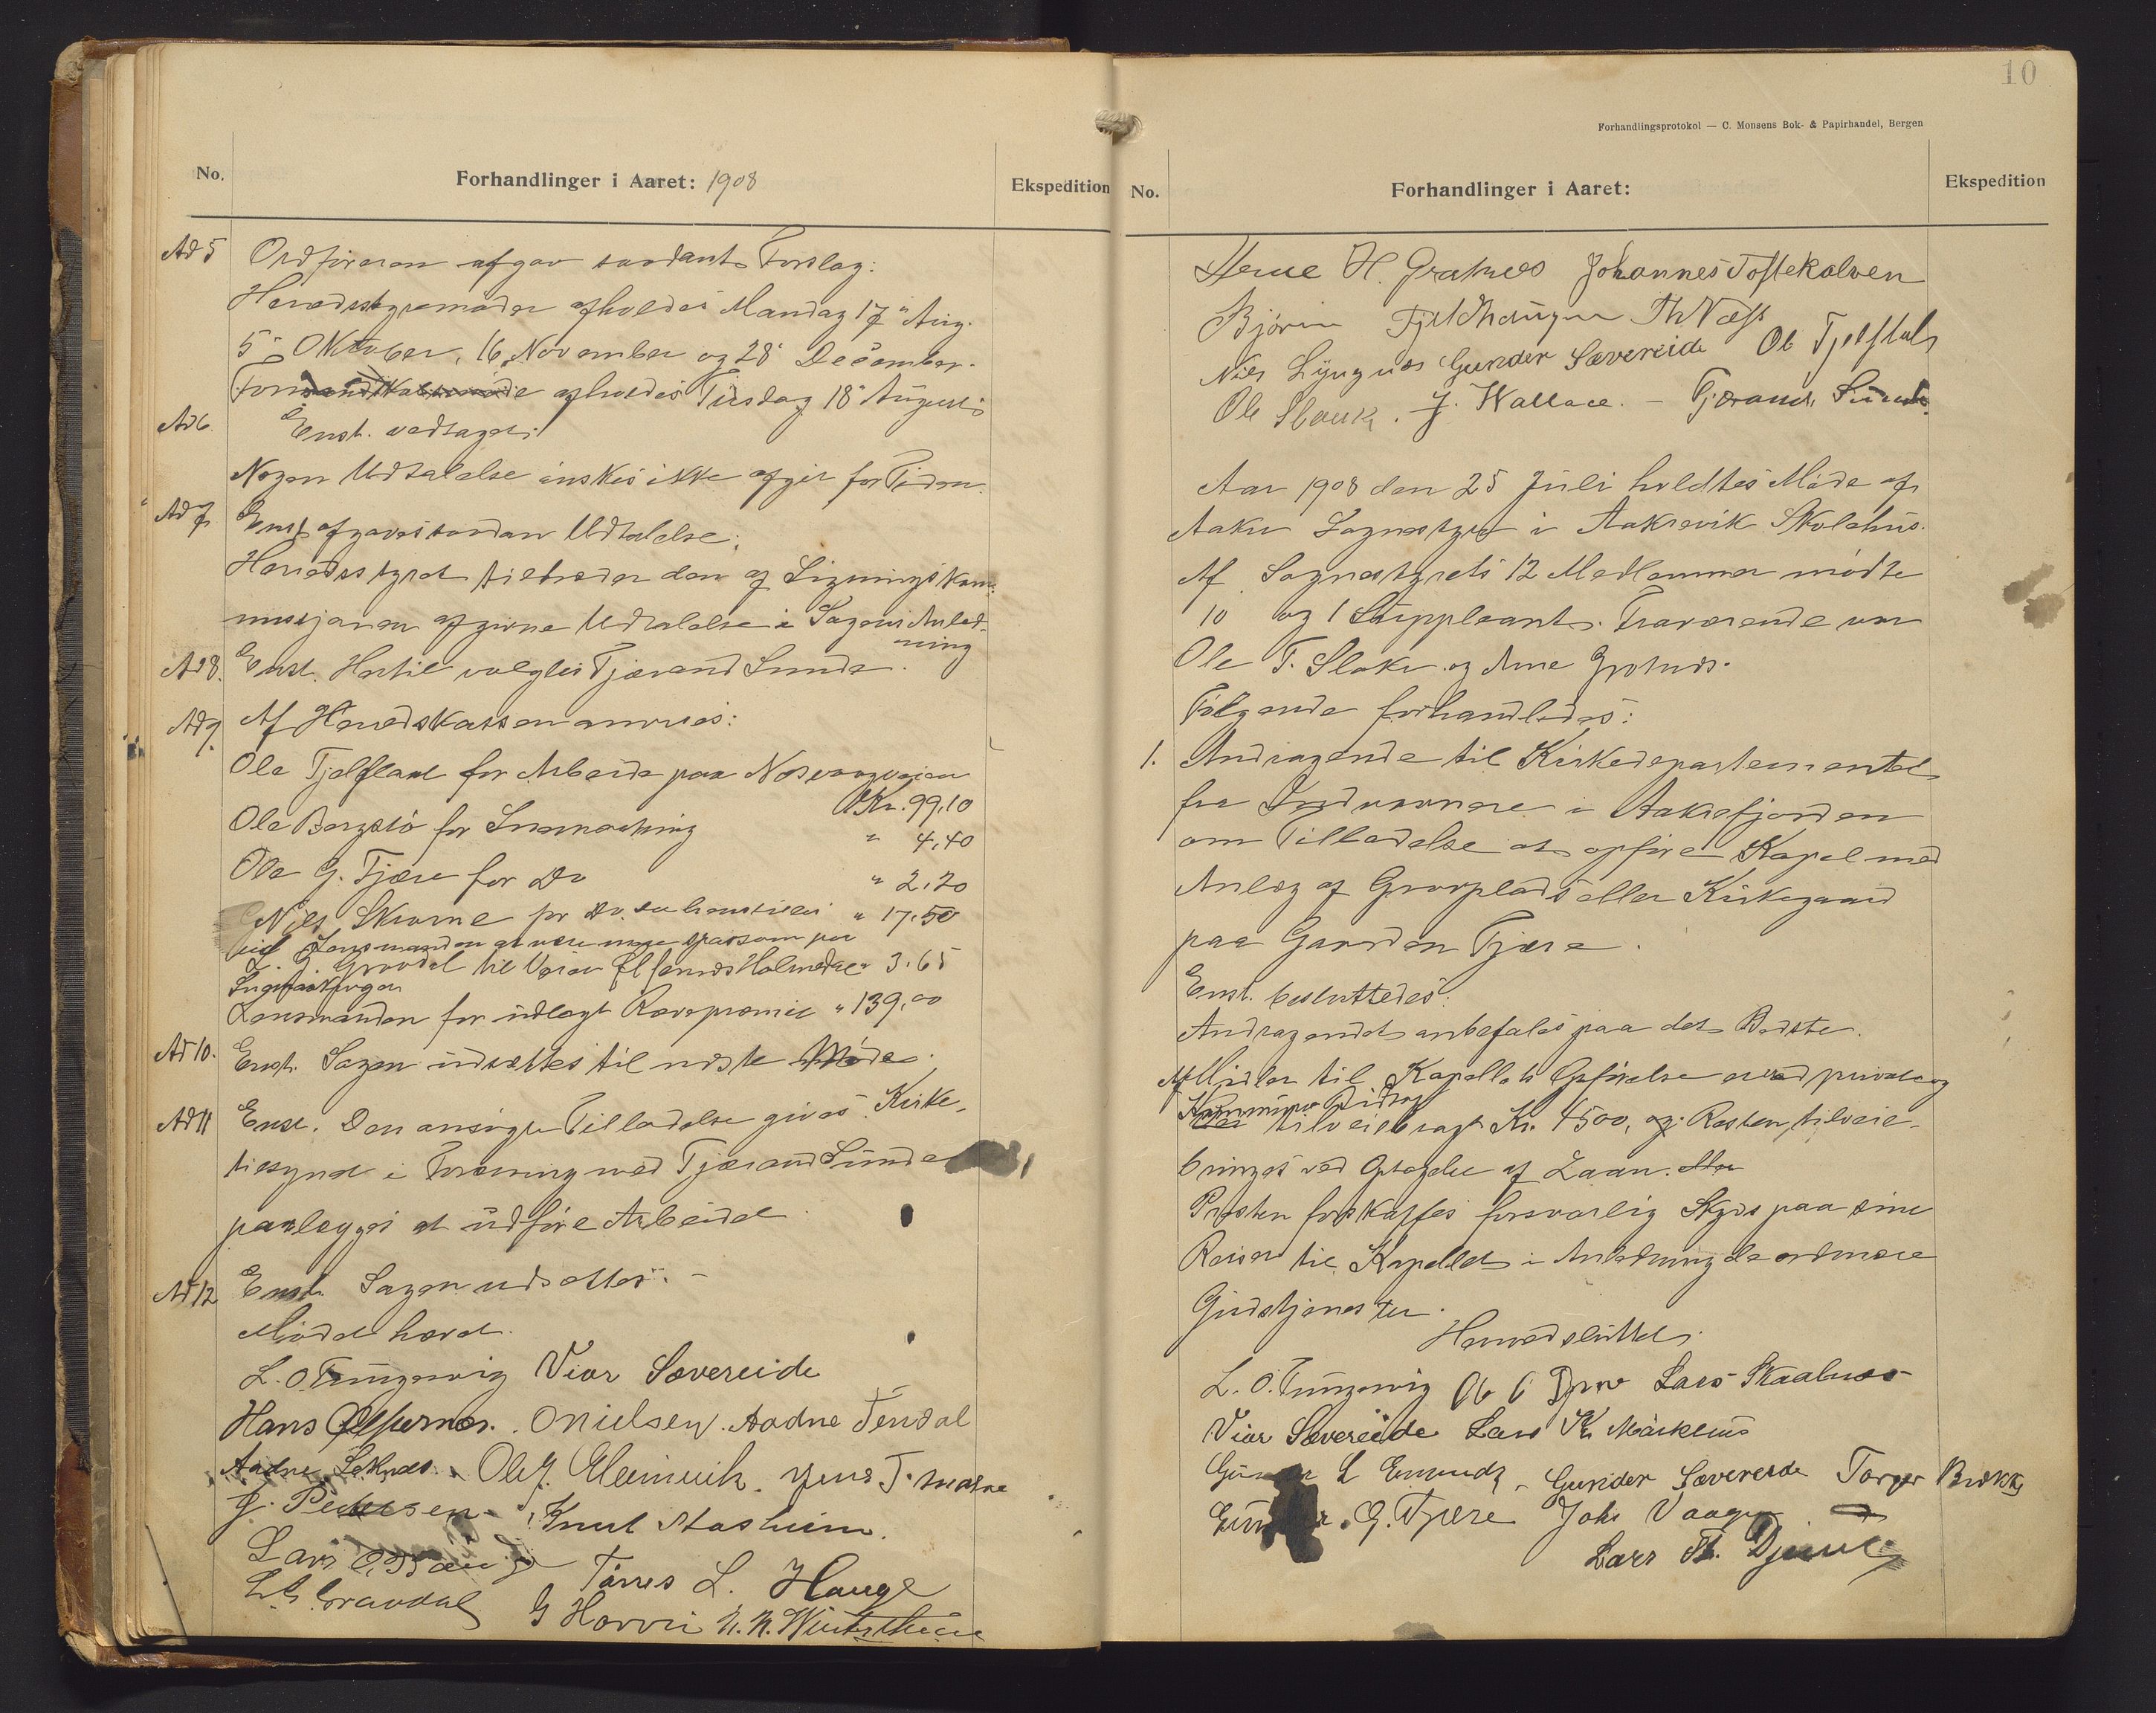 No.
Forhandlinger i Aaret: 1908
Ekspedition
Ad 5 Ordføreren afgav saadant Forslag:
Herredsstyremøder afholdes Mandag 17 Aug.
5 Oktober, 16 November og 28 December.
Formandskabsmøde afholdes Tirsdag 18 August
Ad 6 Enst. vedtaget
Nogen Udtalelse ønskes ikke afgit for Tiden.
Ad 7 Enst. afgaves saadan Udtalelse:
Herredsstyret tiltræder den af Ligningskom-
missjonen afgivne Udtalelse i Sagens Anled-
ning
Ad 8. Enst. Hertil valgtes Tjærand Sunde.
Ad 9. Af Herredskassen anvises:
Ole Tjelflaat for Arbeide paa Næsvaagveien
Kr. 99,10
Ole Bergstø for Snemaaking " 4,40
Ole G. Fjære for Do " 2,20
Nils Skrome for Do. " 17,50
Lensmanden at være mere sparsom paa
Snemaakingen
Grovdal til Veien Ølfernes Holmedal " 3.65
Lensmanden for udlagt Rovpræmie " 139,00
Ad 10. Enst. Sagen udsættes til næste Møde.
Ad 11 Enst. Den ansøgte Tilladelse gives. Kirke-
tilsynet i Forening med Tjærand Sunde
paalægges at udføre Arbeidet.
Ad 12 Enst. Sagen udsættes. -
Mødet hævet.
L. O. Tungesvig Viar Sævereide
Hans Ølfernes. O Nielsen. Aadne Fendal
Aadne Leknes. Ole J. Eleinvik. Jens T.
J. Pedersen. Knut Aasheim.
Lars O.
Tørres L. Hauge
L. G. Gravdal G Horvei
10
Forhandlingsprotokol — C. Monsens Bok- & Papirhandel, Bergen
No.
Forhandlinger i Aaret:
Ekspedition
Arne H. Grotnes Johannes Toftekalven
Bjørn Fjeldhaugen Th Næss
Nils Lyngnes Gunder Sævereide Ole Tjelflaat
Ole Sloek. J. Wallace. - Tjærand Sunde.
Aar 1908 den 25 Juli holdtes Møde af
Aakre Sognestyre i Aakrevik Skolehus.
Af Sognestyrets 12 Medlemmer mødte
10 og 1 Suppleant. Fraværende var
Ole T. Sloke og Arne Grotnes.
Følgende forhandledes:
1. Andragende til Kirkedepartementet
fra Indvaanere i Aakrefjorden
om Tilladelse at opføre Kapel med
Anlæg af Gravplads eller Kirkegaard
paa Gaarden Fjære.
Enst. besluttedes:
Andragendet anbefales paa det Bedste.
Af Midler til Kapellets Opførelse er ved private og
Kommune Bidrag
tilveiebragt Kr. 4500, og Resten tilveie-
bringes ved Optagelse af Laan.
Presten forskaffes forsvarlig Skyds paa sine
Reiser til Kapellet i Anledning de ordinære
Gudstjenester.
Hermed sluttet.
L. O. Tungesvig Lars Skaalnes
Viar Sævereide Lars K. Markhus
Gunder L Emundz - Gunder Sævereide Torger Brekke
G. Fjære Johs Vaage
Lars Th. Djuve